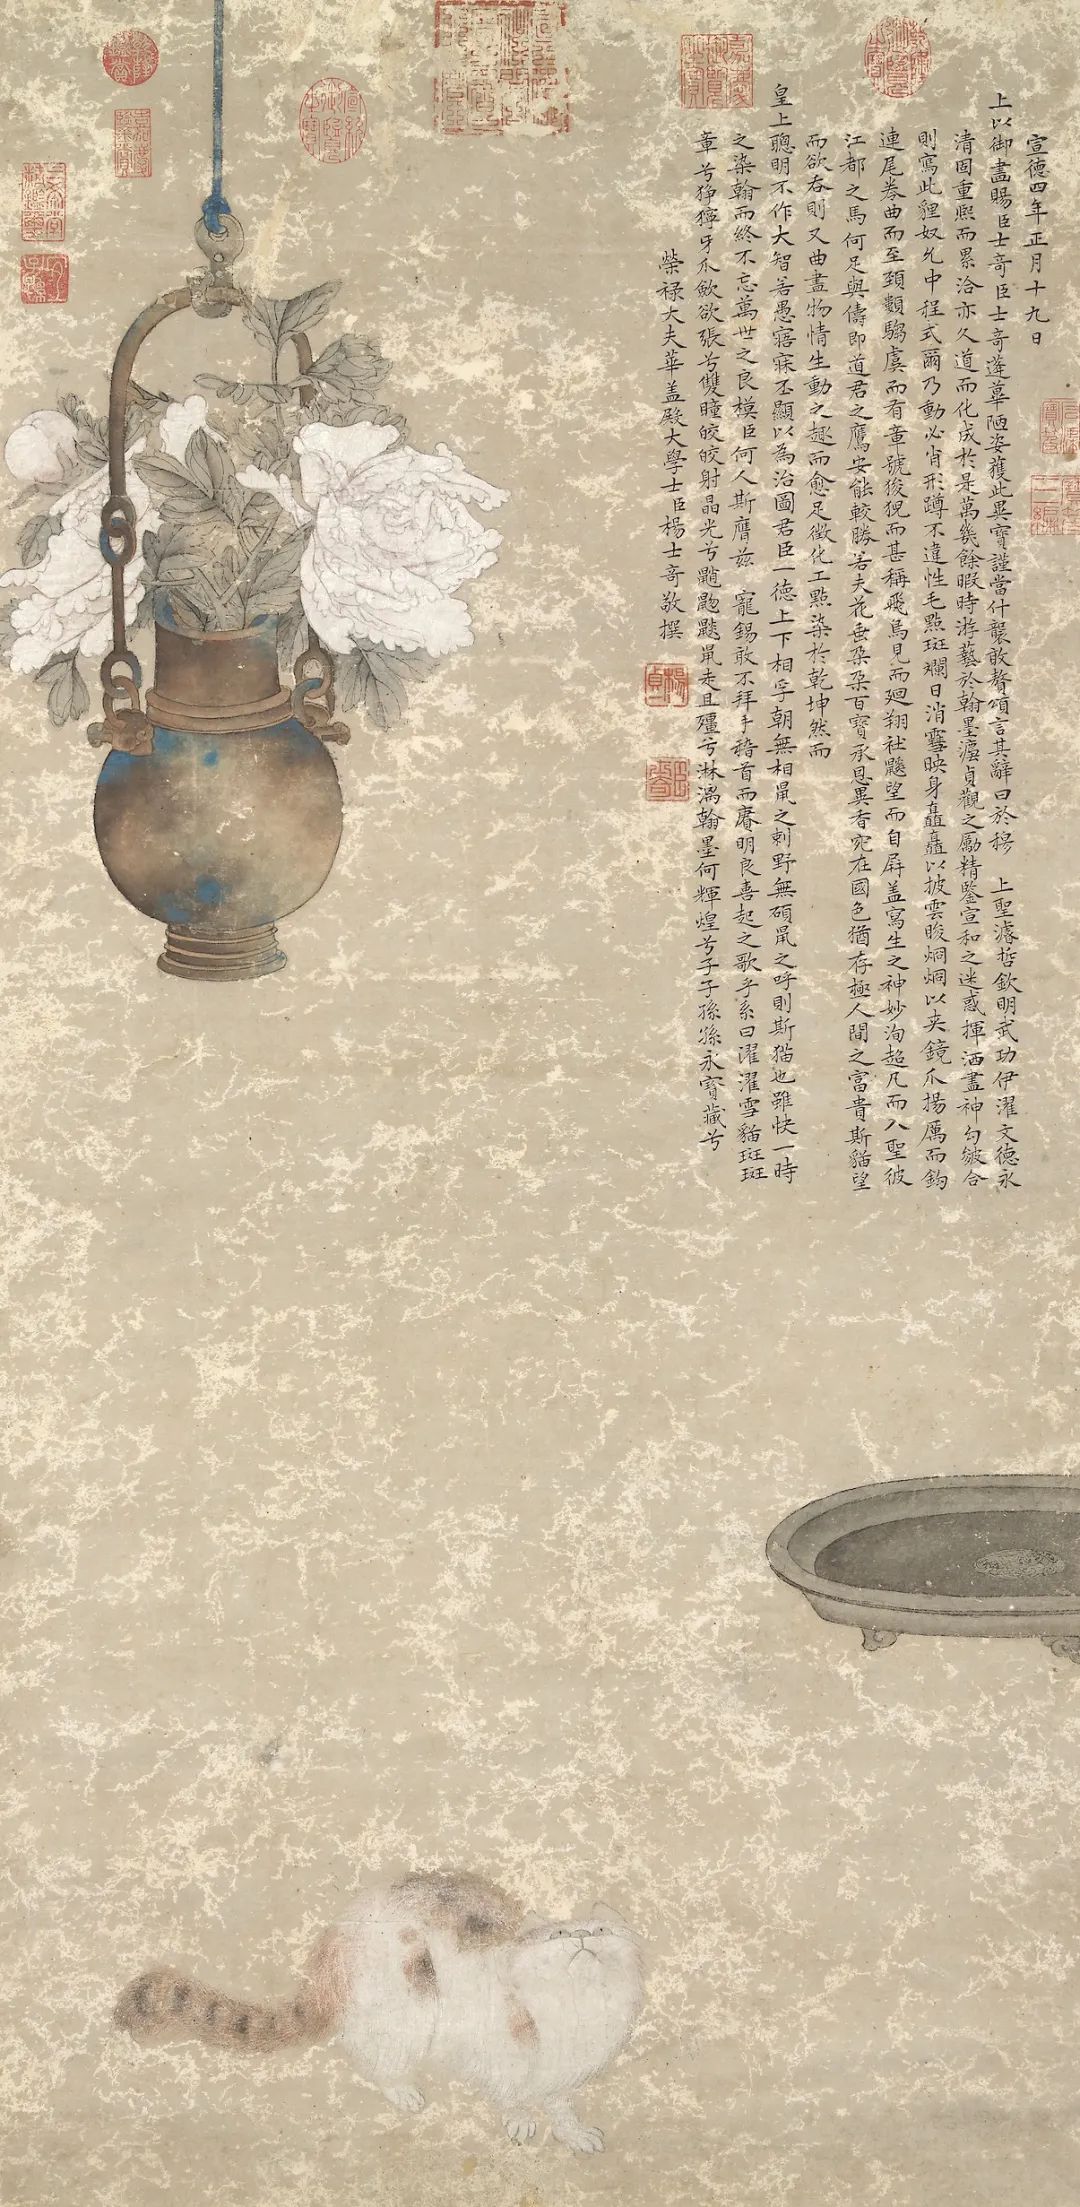 宣德四年正月十九日
上以御畫賜臣士奇臣士奇蓬蓽陋姿獲此異寶謹當什襲敢贅頌言其辭曰於穆　上聖濬哲欽明武功伊濯文德永
清固重熙而累洽亦久道而化成於是萬幾餘暇時游藝於翰墨瀍貞觀之勵精鑒宣和之迷惑揮洒盡神勾皴合
則寫此貍奴允中程式爾乃動必肖形蹲不違性毛點斑斕日消霅映身矗矗以披雲睃烱烱以夾鏡爪揚厲而鈎
連尾拳曲而至頸顙騶虞而有章號狻猊而甚稱飛鳥見而廻翔社鼷望而自屏盖寫生之神妙洵超凡而入聖彼
江都之馬何足與儔即道君之鷹安能較勝若夫花垂朶朶百寶承恩異香宛在國色猶存極人間之富貴斯貓望
而欲吞則又曲盡物情生動之趣而愈足徵化工點染於乾坤然而
皇上聰明不作大智若愚寤寐丕顯以為治圖君臣一德上下相孚朝無相鼠之刺野無碩鼠之呼則斯猫也雖快一時
之染翰而終不忘萬世之良模臣何人斯膺兹　寵錫敢不拜手稽首而賡明良喜起之歌乎系曰濯濯雪貓斑斑
章兮猙獰牙爪歛欲張兮雙瞳皎皎射晶光兮鼪鼯鼷鼠走且殭兮淋漓翰墨何輝煌兮子子孫孫永寶藏兮
榮祿大夫華盖殿大學士臣楊士奇敬撰